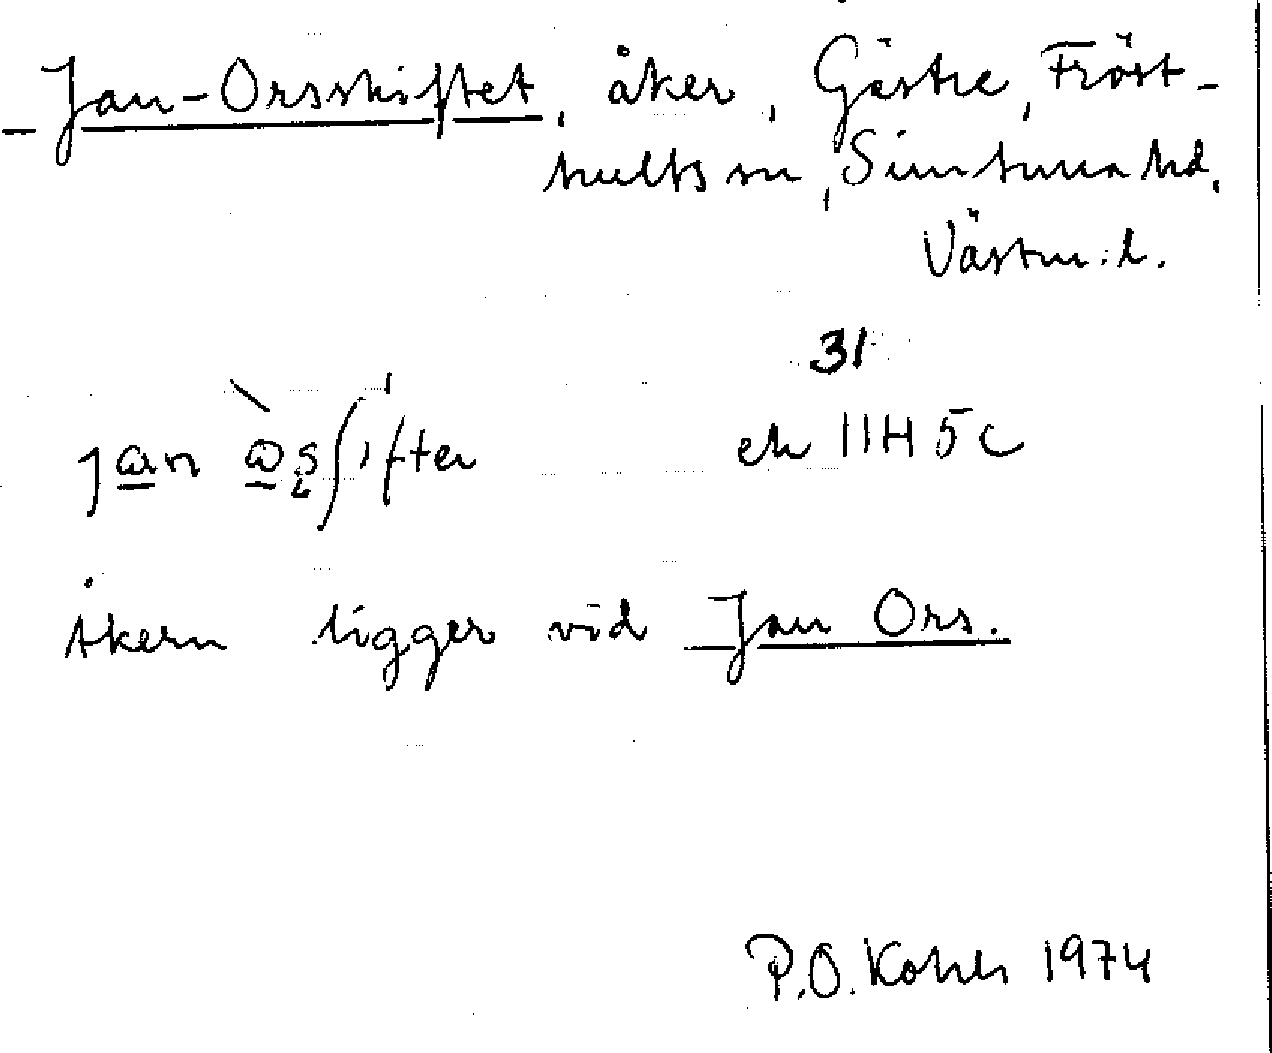 Jan-Orsskiftet, åker, Gästre, Fröst-
hults sn, Simtuna hd,
Västm:l.
31
ek 11H 5c
åkern ligger vid Jan Ors.
P.O. 1974